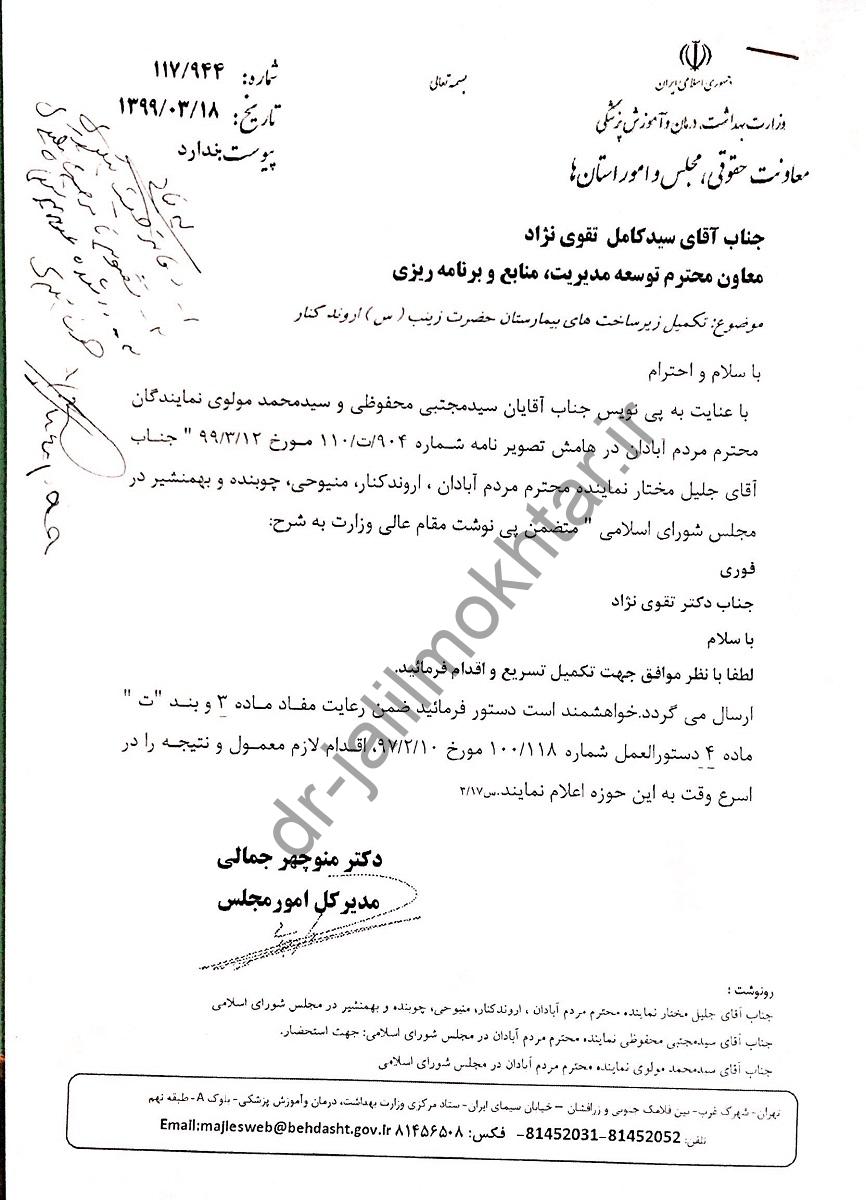 جمهوری اسلامی ایران
وزارت بهداشت، درمان و آموزش پزشکی
معاونت حقوقی، مجلس و امور استان ها
بسمه تعالی
شماره: ۱۱۷/۹۴۴
تاریخ: ۱۳۹۹/۰۳/۱۸
پیوست: ندارد
جناب آقای سیدکامل تقوی نژاد
معاون محترم توسعه مدیریت، منابع و برنامه ریزی
موضوع: تکمیل زیرساخت های بیمارستان حضرت زینب ( س ) اروند کنار
با سلام و احترام
با عنایت به پی نویس جناب آقایان سیدمجتبی محفوظی و سیدمحمد مولوی نمایندگان
محترم مردم آبادان در هامش تصویر نامه شماره ۹۰۴/ت/۱۱۰ مورخ ۹۹/۳/۱۲ " جناب
آقای جلیل مختار نماینده محترم مردم آبادان ، اروندکنار، منیوحی، چوبنده و بهمنشیر در
مجلس شورای اسلامی " متضمن پی نوشت مقام عالی وزارت به شرح:
فوری
جناب دکتر تقوی نژاد
با سلام
لطفا با نظر موافق جهت تکمیل تسریع و اقدام فرمائید.
ارسال می گردد.خواهشمند است دستور فرمائید ضمن رعایت مفاد ماده ۳ و بند "ت "
ماده ۴ دستورالعمل شماره ۱۰۰/۱۱۸ مورخ ۹۷/۲/۱۰، اقدام لازم معمول و نتیجه را در
اسرع وقت به این حوزه اعلام نمایند.س۳/۱۷
دکتر منوچهر جمالی
مدیرکل امورمجلس
رونوشت :
جناب آقای جلیل مختار نماینده محترم مردم آبادان ، اروندکنار، منیوحی، چوبنده و بهمنشیر در مجلس شورای اسلامی
جناب آقای سیدمجتبی محفوظی نماینده محترم مردم آبادان در مجلس شورای اسلامی: جهت استحضار.
جناب آقای سیدمحمد مولوی نماینده محترم مردم آبادان در مجلس شورای اسلامی
تهران- شهرک غرب- بین فلامک جنوبی و زرافشان – خیابان سیمای ایران- ستاد مرکزی وزارت بهداشت، درمان وآموزش پزشکی- بلوک A- طبقه نهم
تلفن: 81452052-81452031- فکس: ۸۱۴۵۶۵۰۸ Email:majlesweb@behdasht.gov.Ir
dr-jalilmokhtar.ir